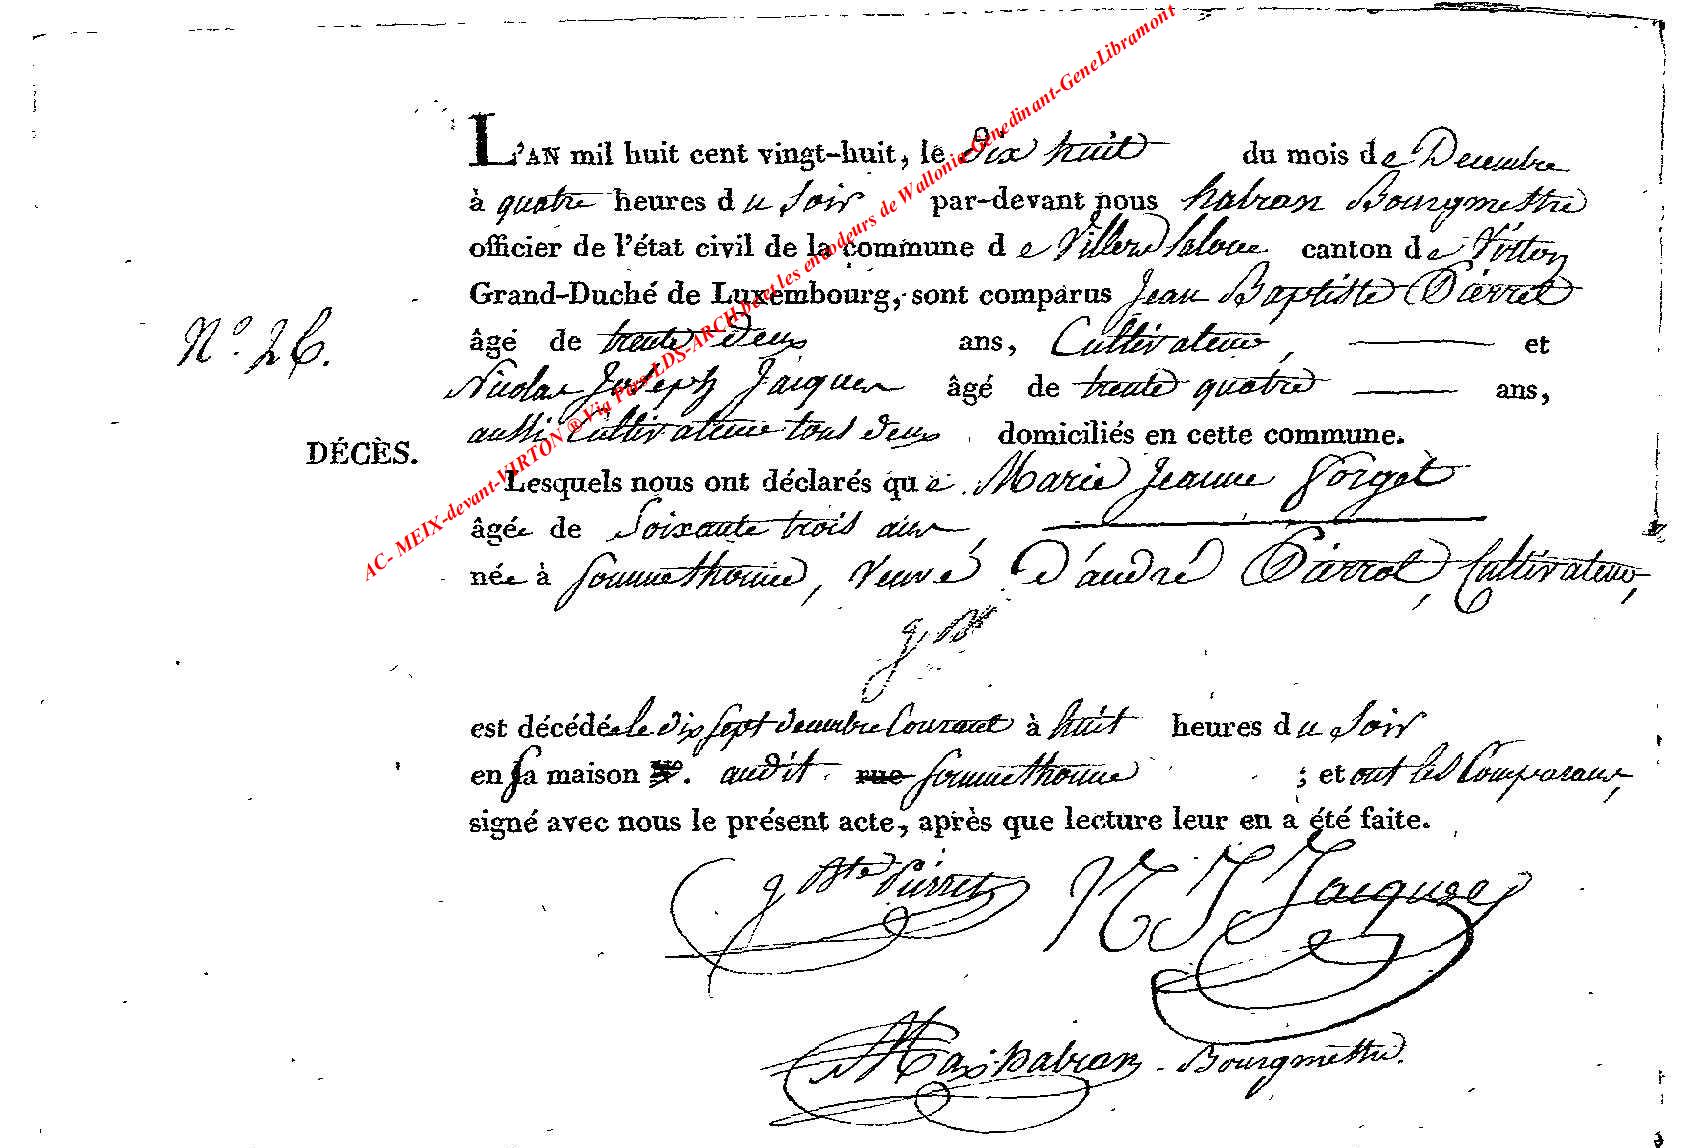 AC- MEIX-devant-VIRTON ® Via Pars-LDS-ARCH.be et les encodeurs de Wallonia-Genedinant-GeneLibramont
L'AN mil huit cent vingt-huit, le Dix huit du mois de Decembre
à quatre heures du Soir par-devant nous habran Bourgmettre
officier de l'état civil de la commune de Villers Laloue canton de Virton
Grand-Duché de Luxembourg, sont comparus Jean Baptiste Pierret
N.º 26.
âgé de trente deux ans, Cultivateur, et
Nicolas Joseph Jacques âgé de trente quatre ans,
aussi Cultivateur tous deux domiciliés en cette commune.
DÉCÈS.
Lesquels nous ont déclarés que Marie Jeanne Gorget
âgée de Soixante trois ans,
née à Sommethonne, veuve d'andré Pierrot, Cultivateur,
est décédée le dix sept decembre Courant à huit heures du Soir
en sa maison Nº. audit rue Sommethonne ; et ont les Comparans,
signé avec nous le présent acte, après que lecture leur en a été faite.
J Bte Pierret N J Jacques
Max habran Bourgmettre.